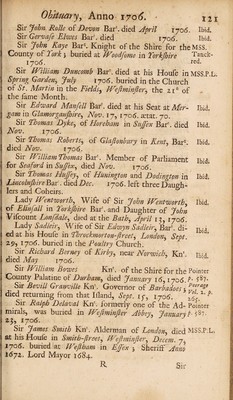 Obituary, Anno 1706. 121
Sir John Rolle of Devon Barᵗ. died April 1706. Ibid.
Sir Gervase Elwes Barᵗ. died 1706. Ibid.
Sir John Kaye Barᵗ. Knight of the Shire for the MSS.
County of York; buried at Woodsome in Yorkshire Tanck-
1706. red.
Sir William Duncomb Barᵗ. died at his House in MSS.P.L.
Spring Garden, July 1706. buried in the Church
of St. Martin in the Fields, Westminster, the 21ˢ of
the same Month.
Sir Edward Mansell Barᵗ. died at his Seat at Mer- Ibid.
gam in Glamorganshire, Nov. 17, 1706. ætat. 70.
Sir Thomas Dyke, of Horeham in Sussex Barᵗ. died Ibid.
Nov. 1706.
Sir Thomas Roberts, of Glassonbury in Kent, Barᵗ. Ibid.
died Nov. 1706.
Sir William Thomas Barᵗ. Member of Parliament Ibid.
for Seaford in Sussex, died Nov. 1706.
Sir Thomas Hussey, of Hunington and Dodington in Ibid.
Lincolnshire Barᵗ. died Dec. 1706. left three Daugh-
ters and Coheirs.
Lady Wentworth, Wife of Sir John Wentworth, Ibid.
of Ellinsall in Yorkshire Barᵗ. and Daughter of John
Viscount Lonsdale, died at the Bath, April 13, 1706.
Lady Sadleir, Wife of Sir Edwyn Sadleir, Barᵗ. di- Ibid.
ed at his House in Throckmorton-street, London, Sept.
29, 1706. buried in the Poultry Church.
Sir Richard Berney of Kirby, near Norwich, Knᵗ. Ibid.
died May 1706.
Sir William Bowes Knᵗ. of the Shire for the Pointer
County Palatine of Durham, died January 16, 1706. p. 587.
Sir Bevill Granville Knᵗ. Governor of Barbadoes Peerage
died returning from that Island, Sept. 15, 1706. Vol. 2. p. 265.
Sir Ralph Delaval Knᵗ. formerly one of the Ad- Pointer
mirals, was buried in Westminster Abbey, January p. 587.
23, 1706.
Sir James Smith Knᵗ. Alderman of London, died MSS.P.L.
at his House in Smith-street, Westminster, Decem. 7,
1706. buried at Westham in Essex; Sheriff Anno
1672. Lord Mayor 1684.
R Sir